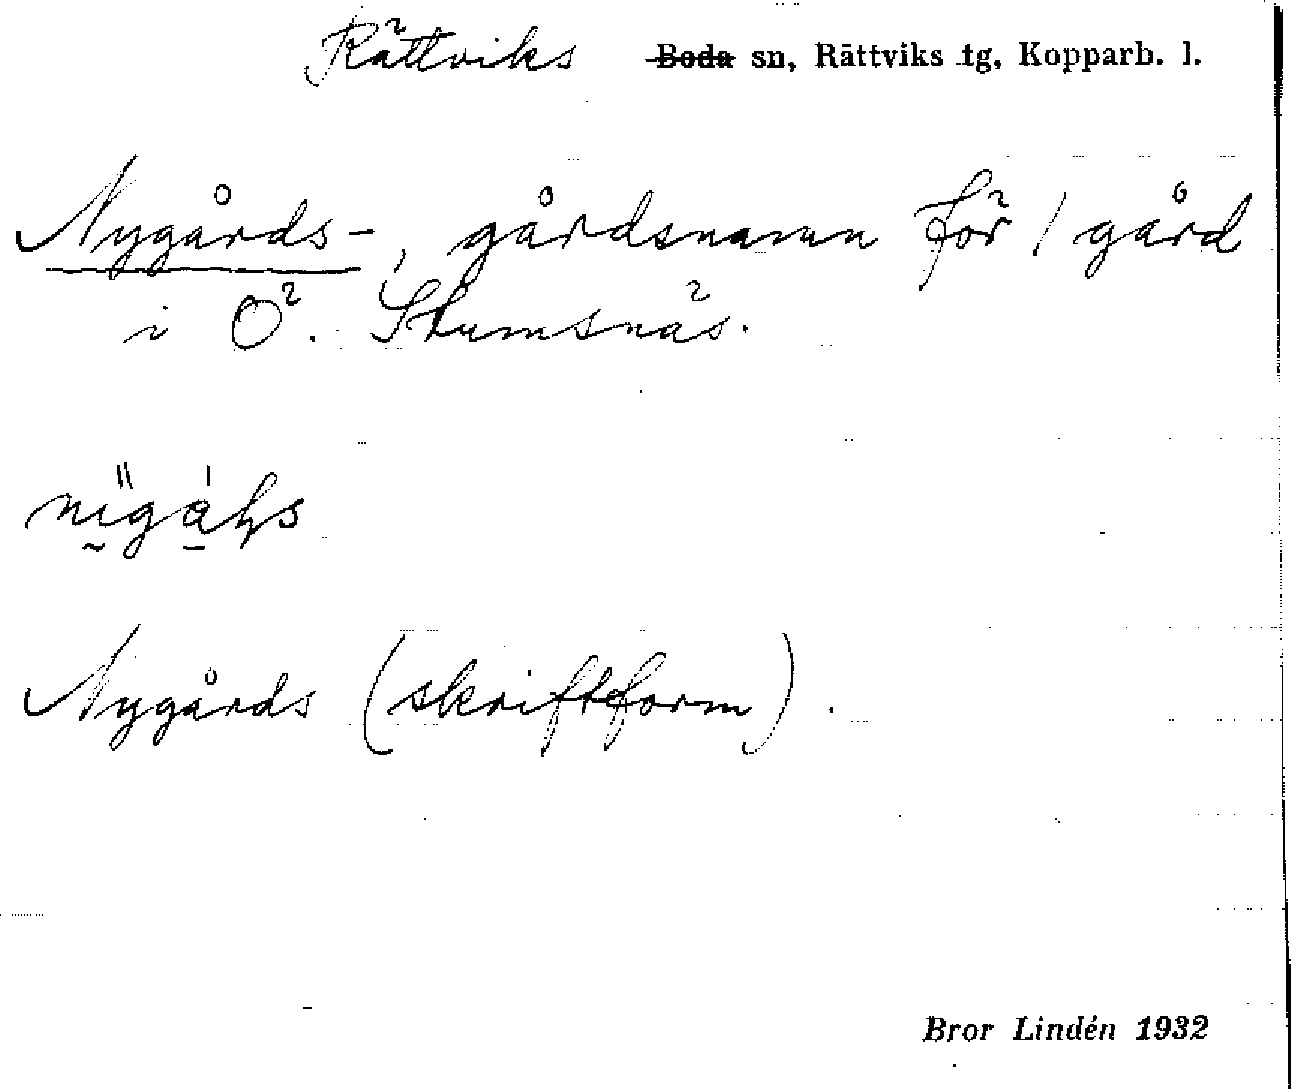 Rättviks Boda sn, Rättviks tg, Kopparb. l.
Nygårds-, gårdsnamn för 1 gård
i Ö. Stumsnäs.
Nygårds (skriftform).
Bror Lindén 1932